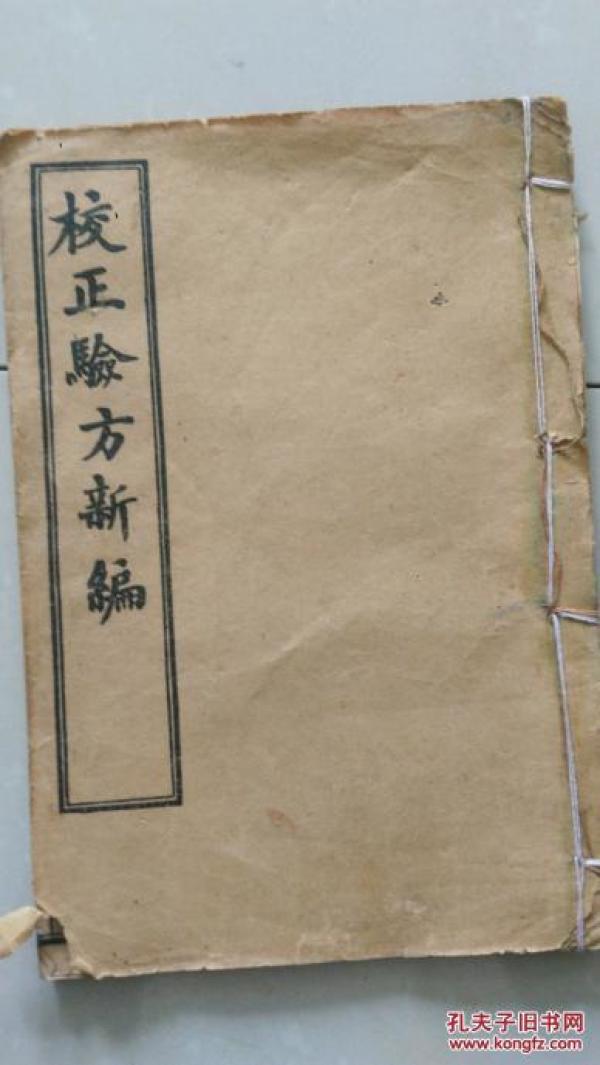 校正驗方新編
孔夫子旧书网
www.kongfz.com